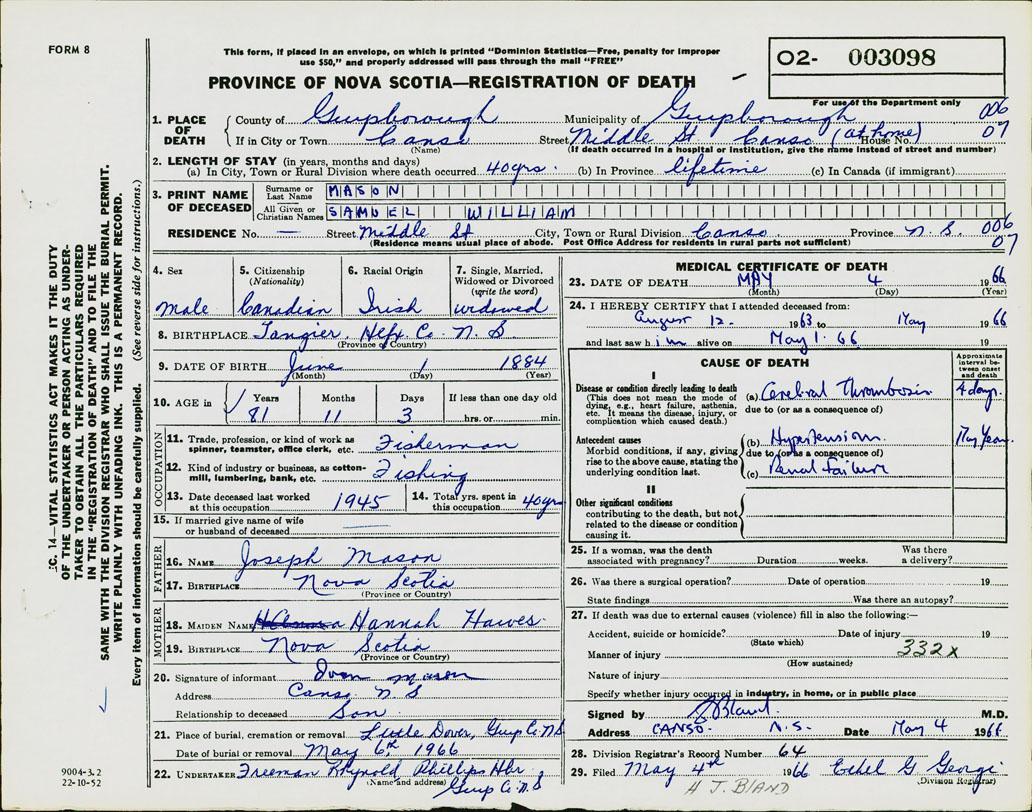 FORM 8
This form, if placed in an envelope, on which is printed "Dominion Statistics—Free, penalty for improper
use $50," and properly addressed will pass through the mail "FREE"
PROVINCE OF NOVA SCOTIA—REGISTRATION OF DEATH
02- 003098
For use of the Department only
006
07
1. PLACE OF DEATH
County of Guysborough Municipality of Guysborough
If in City or Town Canso Street Middle St Canso (at home) House No.
(Name) (If death occurred in a hospital or institution, give the name instead of street and number)
2. LENGTH OF STAY (in years, months and days)
(a) In City, Town or Rural Division where death occurred 40 yrs. (b) In Province lifetime (c) In Canada (if immigrant)
3. PRINT NAME OF DECEASED
Surname or Last Name MASON
All Given or Christian Names SAMUEL WILLIAM
RESIDENCE No. — Street Middle St City, Town or Rural Division Canso Province N. S.
006
07
(Residence means usual place of abode. Post Office Address for residents in rural parts not sufficient)
4. Sex
male
5. Citizenship
(Nationality)
Canadian
6. Racial Origin
Irish
7. Single, Married,
Widowed or Divorced
(write the word)
widowed
8. BIRTHPLACE Tangier, Hfx Co. N. S
(Province or Country)
9. DATE OF BIRTH June 1 1884
(Month) (Day) (Year)
10. AGE in Years Months Days If less than one day old
81 11 3 hrs. or min.
OCCUPATION
11. Trade, profession, or kind of work as
spinner, teamster, office clerk, etc. Fisherman
12. Kind of industry or business, as cotton-
mill, lumbering, bank, etc. Fishing
13. Date deceased last worked
at this occupation 1945
14. Total yrs. spent in
this occupation 40 yrs
15. If married give name of wife
or husband of deceased
FATHER
16. NAME Joseph Mason
17. BIRTHPLACE Nova Scotia
(Province or Country)
MOTHER
18. MAIDEN NAME Hannah Hawes
19. BIRTHPLACE Nova Scotia
(Province or Country)
20. Signature of informant Ivan Mason
Address Canso N S
Relationship to deceased Son
21. Place of burial, cremation or removal Little Dover, Guys Co. NS
Date of burial or removal May 6th 1966
22. UNDERTAKER Freeman Reynold Phillips Hbr.
(Name and address) Guys Co. N. S
MEDICAL CERTIFICATE OF DEATH
23. DATE OF DEATH MAY 4 1966
(Month) (Day) (Year)
24. I HEREBY CERTIFY that I attended deceased from:
August 12. 1963 to May 1966
and last saw him alive on May 1. 66 19
CAUSE OF DEATH
Approximate
interval be-
tween onset
and death
I
Disease or condition directly leading to death
(This does not mean the mode of
dying, e.g., heart failure, asthenia,
etc. It means the disease, injury, or
complication which caused death.)
(a) Cerebral Thrombosis 4 days.
due to (or as a consequence of)
Antecedent causes
Morbid conditions, if any, giving
rise to the above cause, stating the
underlying condition last.
(b) Hypertension.
due to (or as a consequence of)
(c) Renal Failure
II
Other significant conditions
contributing to the death, but not
related to the disease or condition
causing it.
25. If a woman, was the death
associated with pregnancy? Duration weeks. Was there
a delivery?
26. Was there a surgical operation? Date of operation 19
State findings Was there an autopsy?
27. If death was due to external causes (violence) fill in also the following:—
Accident, suicide or homicide? Date of injury 19
(State which)
Manner of injury 332x
(How sustained)
Nature of injury
Specify whether injury occurred in industry, in home, or in public place
Signed by Bland M.D.
Address CANSO. N.S. Date May 4 1966
28. Division Registrar's Record Number 64
29. Filed May 4th 1966 Ethel G Georgi
(Division Registrar)
H J BLAND
C. 14—VITAL STATISTICS ACT MAKES IT THE DUTY
OF THE UNDERTAKER OR PERSON ACTING AS UNDER-
TAKER TO OBTAIN ALL THE PARTICULARS REQUIRED
IN THE "REGISTRATION OF DEATH" AND TO FILE THE
SAME WITH THE DIVISION REGISTRAR WHO SHALL ISSUE THE BURIAL PERMIT.
WRITE PLAINLY WITH UNFADING INK. THIS IS A PERMANENT RECORD.
Every item of information should be carefully supplied. (See reverse side for instructions.)
9004-3.2
22-10-52